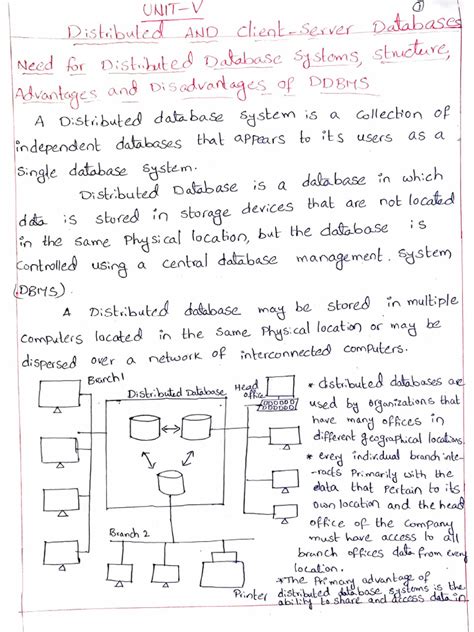 UNIT-V
①
Distributed AND Client-Server Databases
Need for Distributed Database Systems, Structure,
Advantages and Disadvantages of DDBMS
A Distributed database system is a collection of
independent databases that appears to its users as a
single database system.
Distributed Database is a database in which
data is stored in storage devices that are not located
in the same Physical location, but the database is
controlled using a central database management system
(DBMS).
A Distributed database may be stored in multiple
computers located in the same Physical location or may be
dispersed over a network of interconnected computers.
Branch 1
Distributed Database
Head
office
Branch 2
Printer
* distributed databases are
used by organizations that
have many offices in
different geographical locations.
* every individual branch inte-
racts Primarily with the
data that pertain to its
own location and the head
office of the company
must have access to all
branch offices data from every
location.
* The Primary advantage of
distributed database systems is the
ability to share and access data in